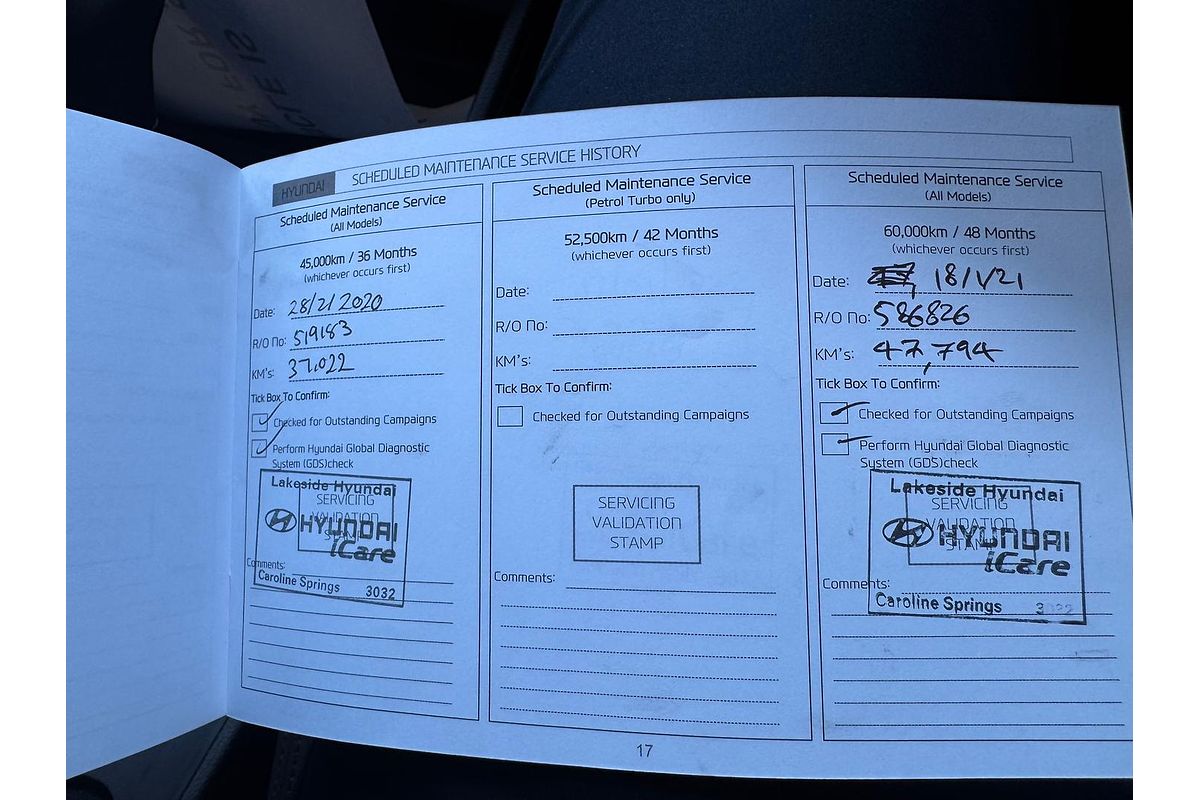 HYUNDAI
SCHEDULED MAINTENANCE SERVICE HISTORY
Scheduled Maintenance Service
(All Models)
45,000km / 36 Months
(whichever occurs first)
Date: 28/2/2020
R/O No: 519183
KM's: 37,022
Tick Box To Confirm:
Checked for Outstanding Campaigns
Perform Hyundai Global Diagnostic
System (GDS)check
Lakeside Hyundai
SERVICING
VALIDATION
STAMP
HYUNDAI
iCare
Comments:
Caroline Springs 3032
Scheduled Maintenance Service
(Petrol Turbo only)
52,500km / 42 Months
(whichever occurs first)
Date:
R/O No:
KM's:
Tick Box To Confirm:
Checked for Outstanding Campaigns
SERVICING
VALIDATION
STAMP
Comments:
Scheduled Maintenance Service
(All Models)
60,000km / 48 Months
(whichever occurs first)
Date: 18/1/21
R/O No: 586826
KM's: 47,794
Tick Box To Confirm:
Checked for Outstanding Campaigns
Perform Hyundai Global Diagnostic
System (GDS)check
Lakeside Hyundai
SERVICING
VALIDATION
STAMP
HYUNDAI
iCare
Comments:
Caroline Springs 3032
17